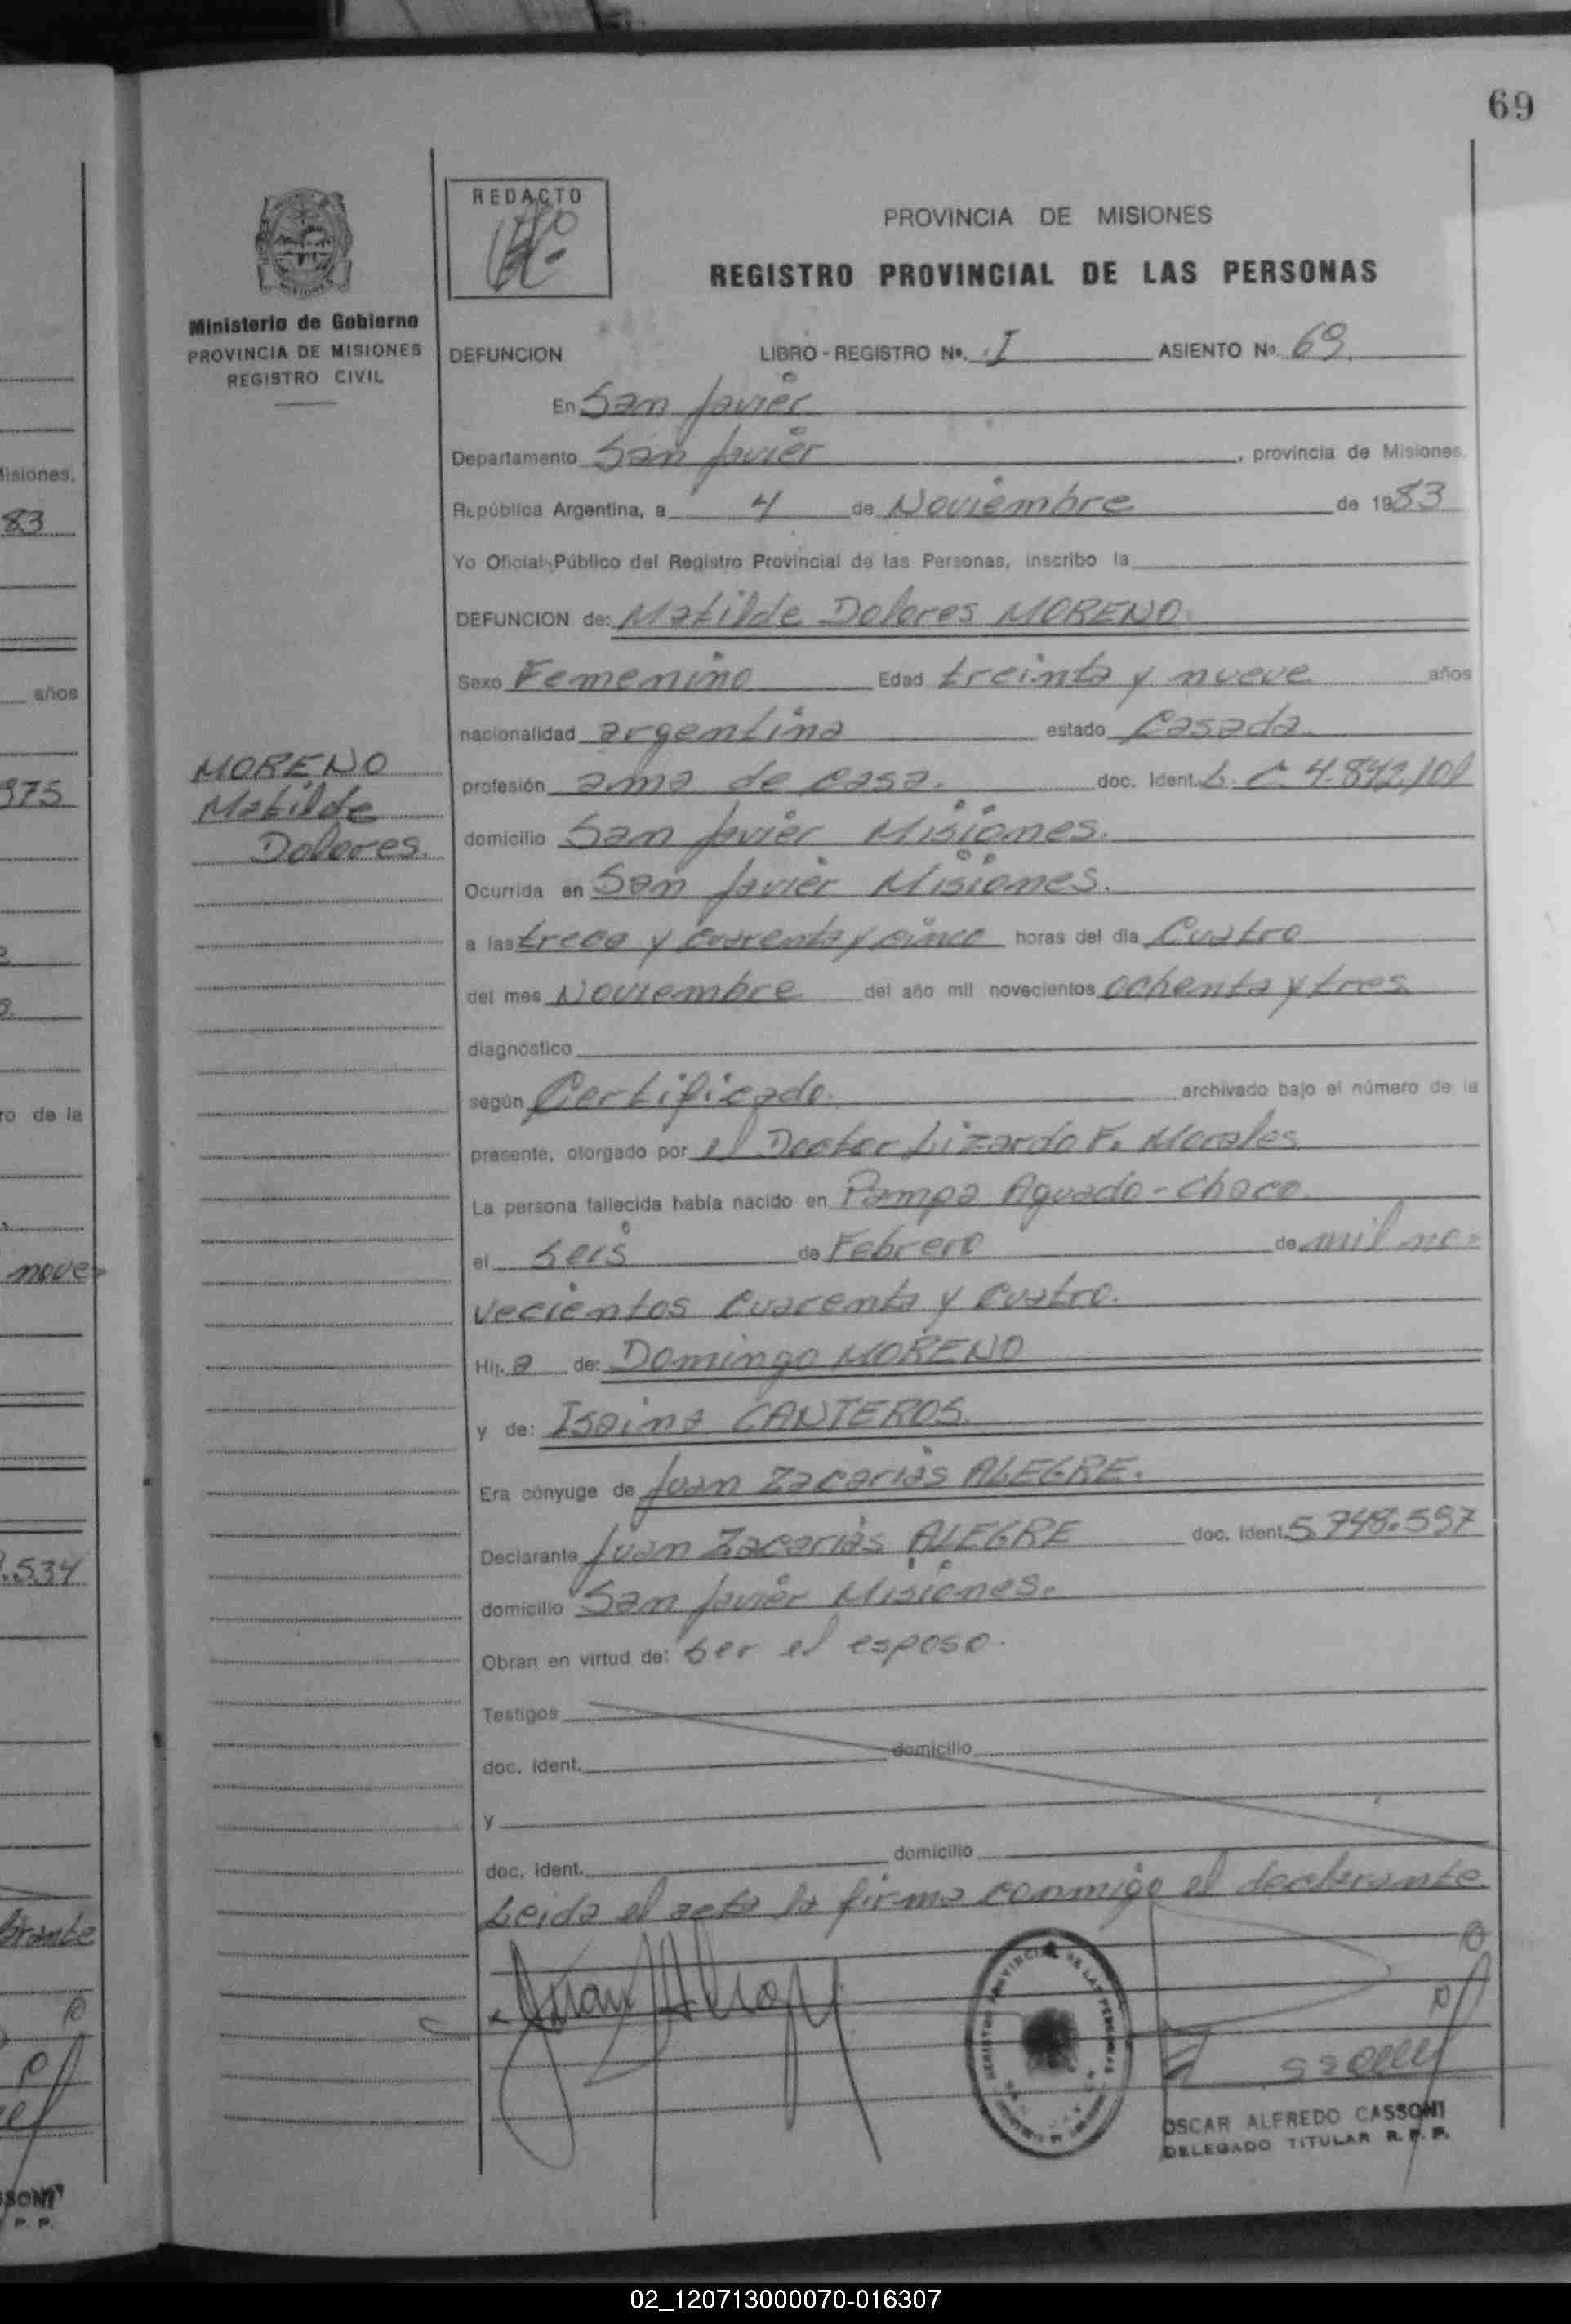 69
REDACTO
PROVINCIA DE MISIONES
REGISTRO PROVINCIAL DE LAS PERSONAS
Ministerio de Gobierno
PROVINCIA DE MISIONES
REGISTRO CIVIL
DEFUNCION LIBRO - REGISTRO Nº. I ASIENTO Nº 69.
En San Javier
Departamento San Javier, provincia de Misiones,
República Argentina, a 4 de Noviembre de 1983
Yo Oficial Público del Registro Provincial de las Personas, inscribo la
DEFUNCION de: Matilde Dolores MORENO
Sexo Femenino Edad treinta y nueve años
nacionalidad argentina estado Casada.
MORENO
Matilde
Dolores.
profesión ama de casa. doc. Ident. L. C. 4.842.101
domicilio San Javier Misiones.
Ocurrida en San Javier Misiones.
a las trece y cuarenta y cinco horas del día Cuatro
del mes Noviembre del año mil novecientos ochenta y tres
diagnóstico
según Certificado. archivado bajo el número de la
presente, otorgado por el Doctor Lizardo F. Morales
La persona fallecida había nacido en Pampa Aguado - Chaco
el seis de Febrero de mil no=
vecientos cuarenta y cuatro.
Hij. a de: Domingo MORENO
y de: Isaina CANTEROS.
Era cónyuge de Juan Zacarias ALEGRE.
Declarante Juan Zacarias ALEGRE doc. ident. 5.748.597
domicilio San Javier Misiones.
Obran en virtud de: ser el esposo.
Testigos
doc. ident. domicilio
y
doc. ident. domicilio
Leida el acta la firma conmigo el declarante
OSCAR ALFREDO CASSONI
DELEGADO TITULAR R. P. P.
Misiones,
83
años
975
ro de la
nove=
.534
02_120713000070-016307